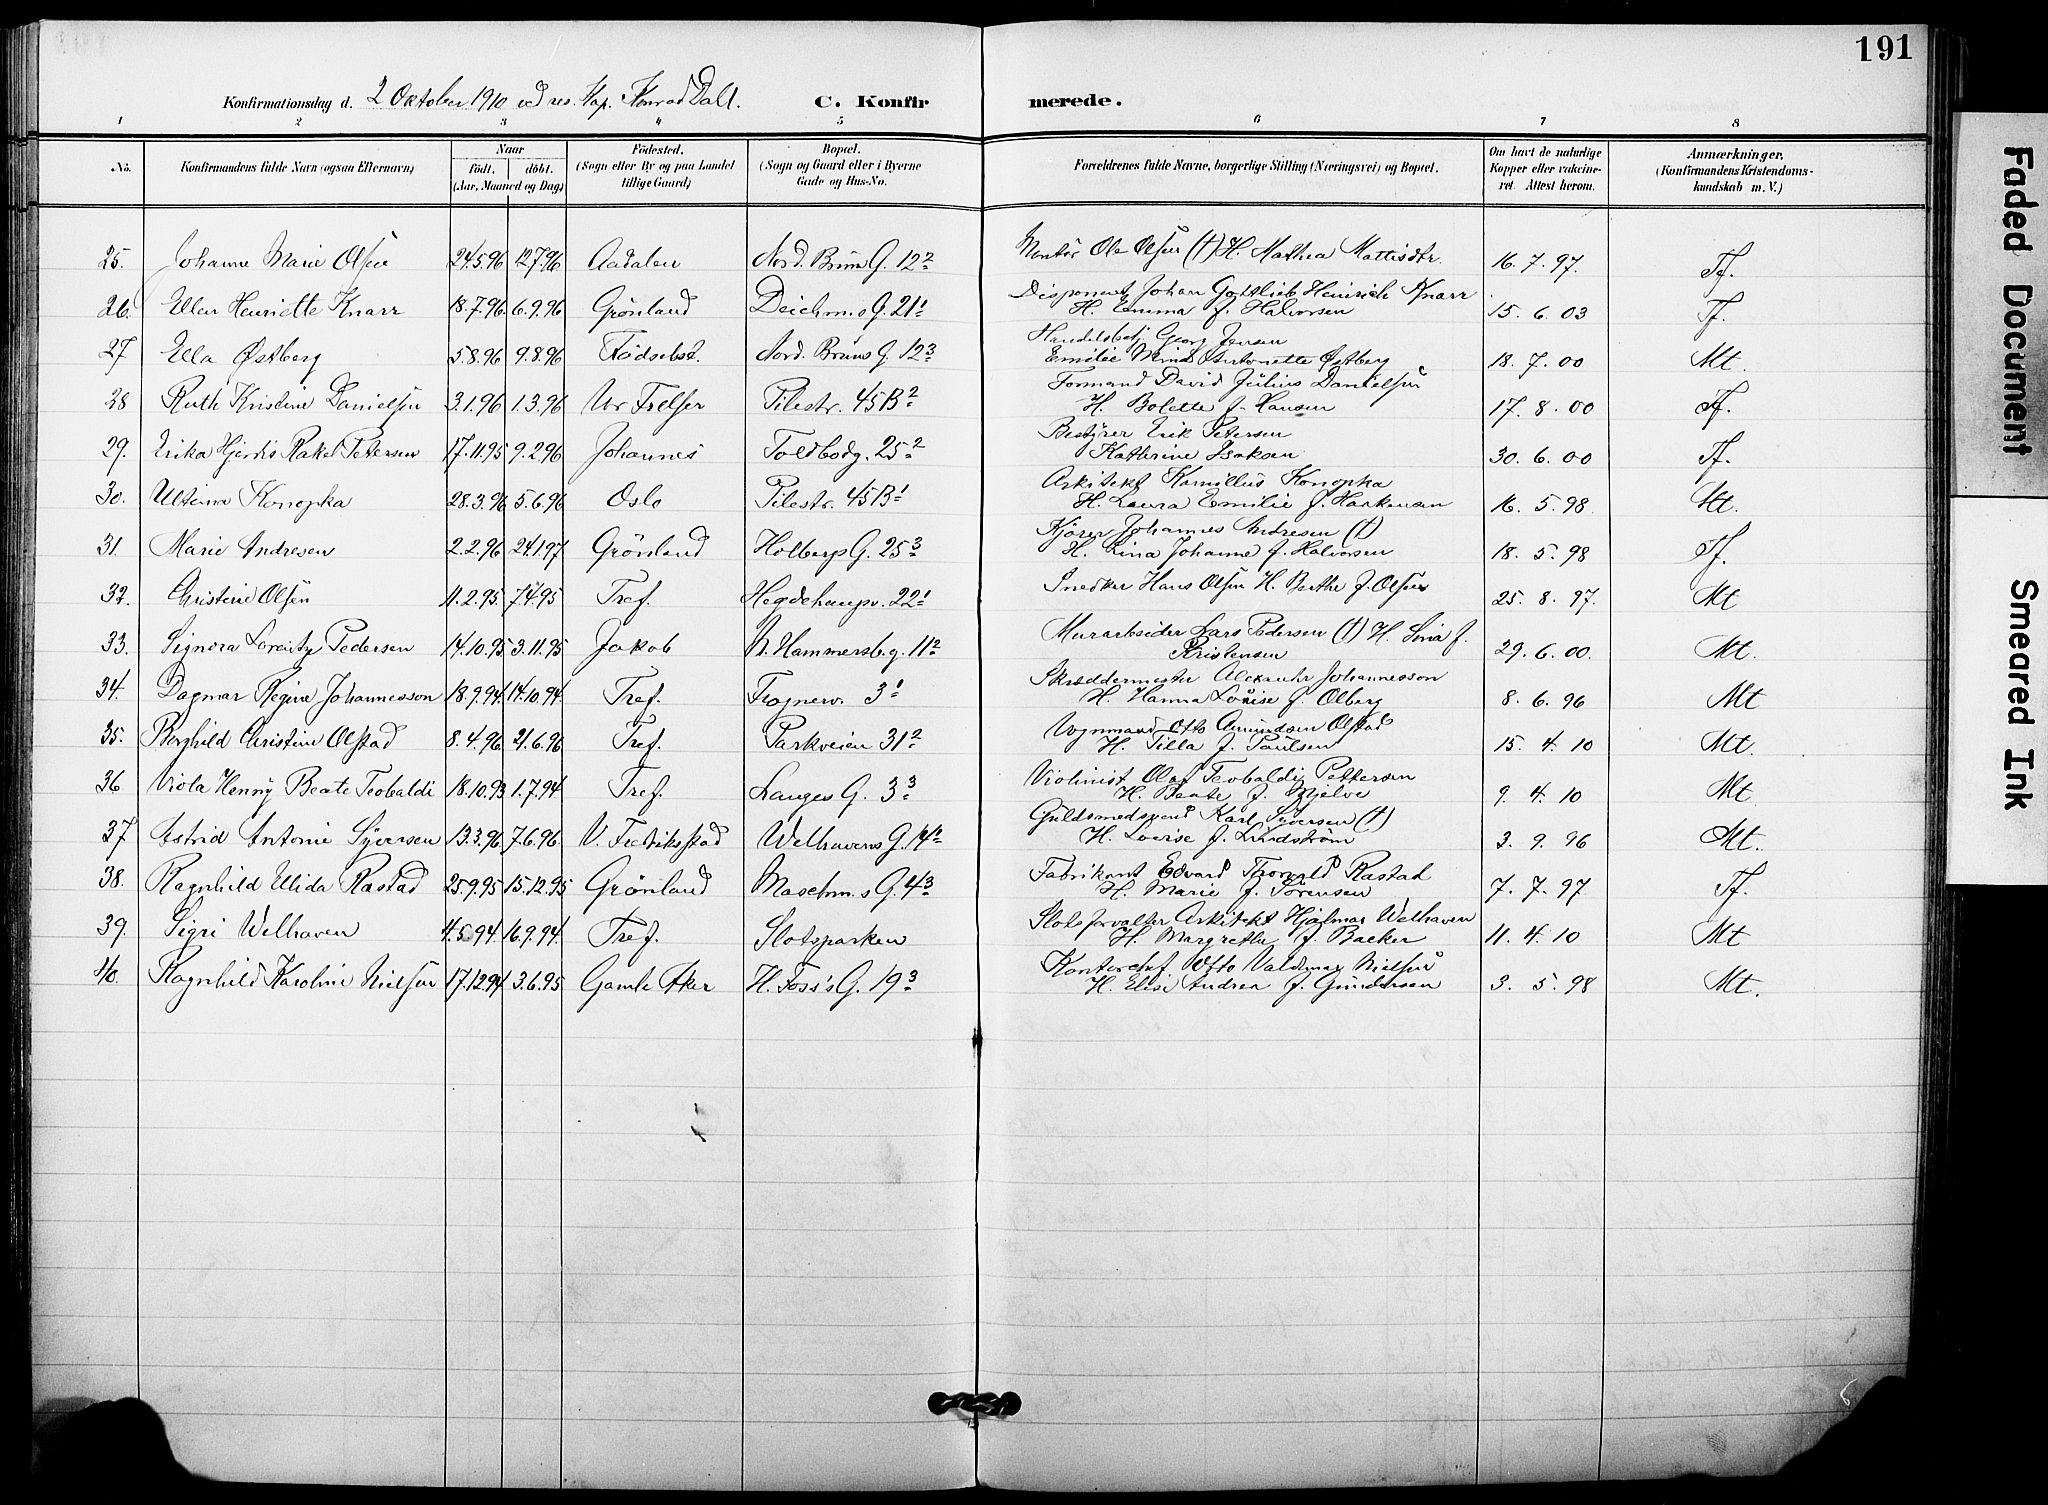 191
Konfirmationsdag d. 2 Oktober 1910 ved res. Kap. Konrad Dall. C. Konfirmerede.
1 2 3 4 5 6 7 8
No. Konfirmandens fulde Navn (ogsaa Efternavn) Naar født. døbt. (Aar, Maaned og Dag) Fødested. (Sogn eller By og paa Landet tillige Gaard) Bopæl. (Sogn og Gaard eller i Byerne Gade og Hus-No. Forældrenes fulde Navne, borgerlige Stilling (Næringsvei) og Bopæl. Om havt de naturlige Kopper eller vakcineret. Attest herom. Anmærkninger, (Konfirmandens Kristendomskundskab m. V.)
25. Johanne Marie Olsen 24.5.96 12.7.96 Aadalen Nord. Brüns G. 12² Ole Olsen (†) H. Mathea Mattisdtr. 16. 7. 97. Tf.
26. Ellen Henriette Knarr 18.7.96 6.9.96 Grönland Deichm.s G. 21¹ Disponent Johan Gottlieb Heinrich Knarr
H. Emma f. Halvorsen 15. 6. 03 Tf.
27 Ella Østberg 5.8.96 9.8.96 Födselsst. Nord. Brüns G. 12³ Handelsbetj. Georg Jensen
Emilie Antonette Østberg 18. 7. 00 Mt.
28 Ruth Kristine Danielsen 3.1.96 1.3.96 Vor Frelser Pilestr. 45B² Formand David Julius Danielsen
H. Bolette f. Hansen 17. 8. 00 Tf.
29. Erika Hjördis Rakel Petersen 17.11.95 9.2.96 Johannes Toldbodg. 25² Bestyrer Erik Petersen
Kathrine Isaksen 30. 6. 00 Tf.
30. Ultima Konopka 28.3.96 5.6.96 Oslo Pilestr. 45B¹ Arkitekt Kamillus Konopka
H. Laura Emilie f. Haakensen 16. 5. 98. Mt.
31. Marie Andresen 2.2.96 24.1.97 Grönland Holbergs G. 25³ Kjörer Johannes Andresen (†)
H. Lina Johanne f. Halvorsen 18. 5. 98 Tf.
32. Christine Olsen 11.2.95 7.4.95 Tref. Hegdehaugsv. 22¹ Snedker Hans Olsen H. Berthe f. Olsen 25. 8. 97. Mt
33. Signora Lorentze Pedersen 14.10.95 3.11.95 Jakob N. Hammersb.g. 11² Murarbeider Lars Pedersen (†) H. Lina f.
Kristensen 29. 6. 00. Mt.
34. Dagmar Regine Johannesson 18.9.94 14.10.94. Tref. Frognerv. 3¹ Skræddermester Alexander Johannesson
H. Hanna Lovise f. Olberg 8. 6. 96 Mt
35. Borghild Christine Olstad 8.4.96 21.6.96 Tref. Parkveien 31² Vognmand Otto Amundsen Olstad
H. Tilla f. Paulsen 15. 4. 10 Mt.
36 Viola Henny Beate Teobaldi 18.10.93 1.7.94 Tref. Langes G. 3³ Violinist Olaf Teobaldi Pettersen
H. Beate f. Mjelve 9. 4. 10 Mt
37 Astrid Antonie Syversen 13.3.96 7.6.96. V. Fredriksstad Welhavens G. 14² Guldsmedsvend Karl Syversen (†)
H. Lovise f. Lindström 3. 9. 96 Mt.
38. Ragnhild Elida Rastad 25.9.95 15.12.95 Grönland Maschm.s G. 4³ Fabrikant Edvard Thorvald Rastad
H. Marie f. Sörensen 7. 7. 97 Tf.
39. Sigri Welhaven 4.5.94 16.9.94. Tref. Slotsparken Slotsforvalter Arkitekt Hjalmar Welhaven
H. Margrethe f. Backer 11. 4. 10 Mt
40. Ragnhild Karoline Nielsen 17.12.94 3.6.95 Gamle Aker H. Foss's G. 19³ Kontorchef Otto Valdemar Nielsen
H. Elise Andrea f. Gundersen 3. 5. 98 Mt.
Faded Document
Smeared Ink